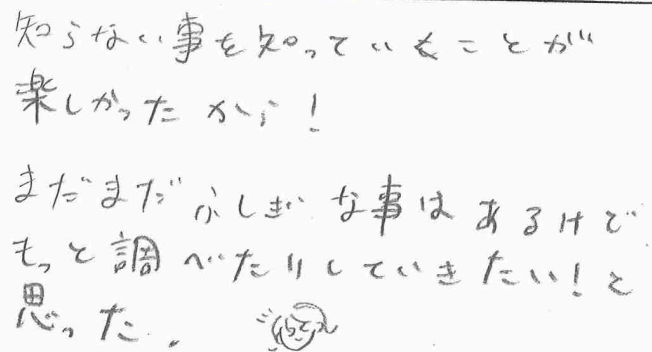 知らない事を知っていくことが
楽しかったから!
まだまだふしぎな事はあるけど
もっと調べたりしていきたい!と
思った.